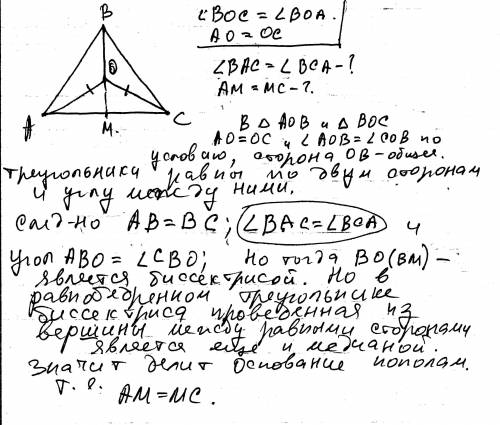 B
∠BOC = ∠BOA.
AO = OC
O
∠BAC = ∠BCA - ?
AM = MC - ?.
A
M.
C
В △ AOB и △ BOC
AO=OC и ∠AOB=∠COB по
условию, сторона OB - общая.
треугольники равны по двум сторонам
и углу между ними.
След-но AB = BC; ∠BAC=∠BCA и
угол ABO = ∠CBO; Но тогда BO(BM) -
является биссектрисой. Но в
равнобедренном треугольнике
биссектриса проведенная из
вершины между равными сторонами
является еще и медианой.
Значит делит основание пополам.
т. е.
AM = MC.